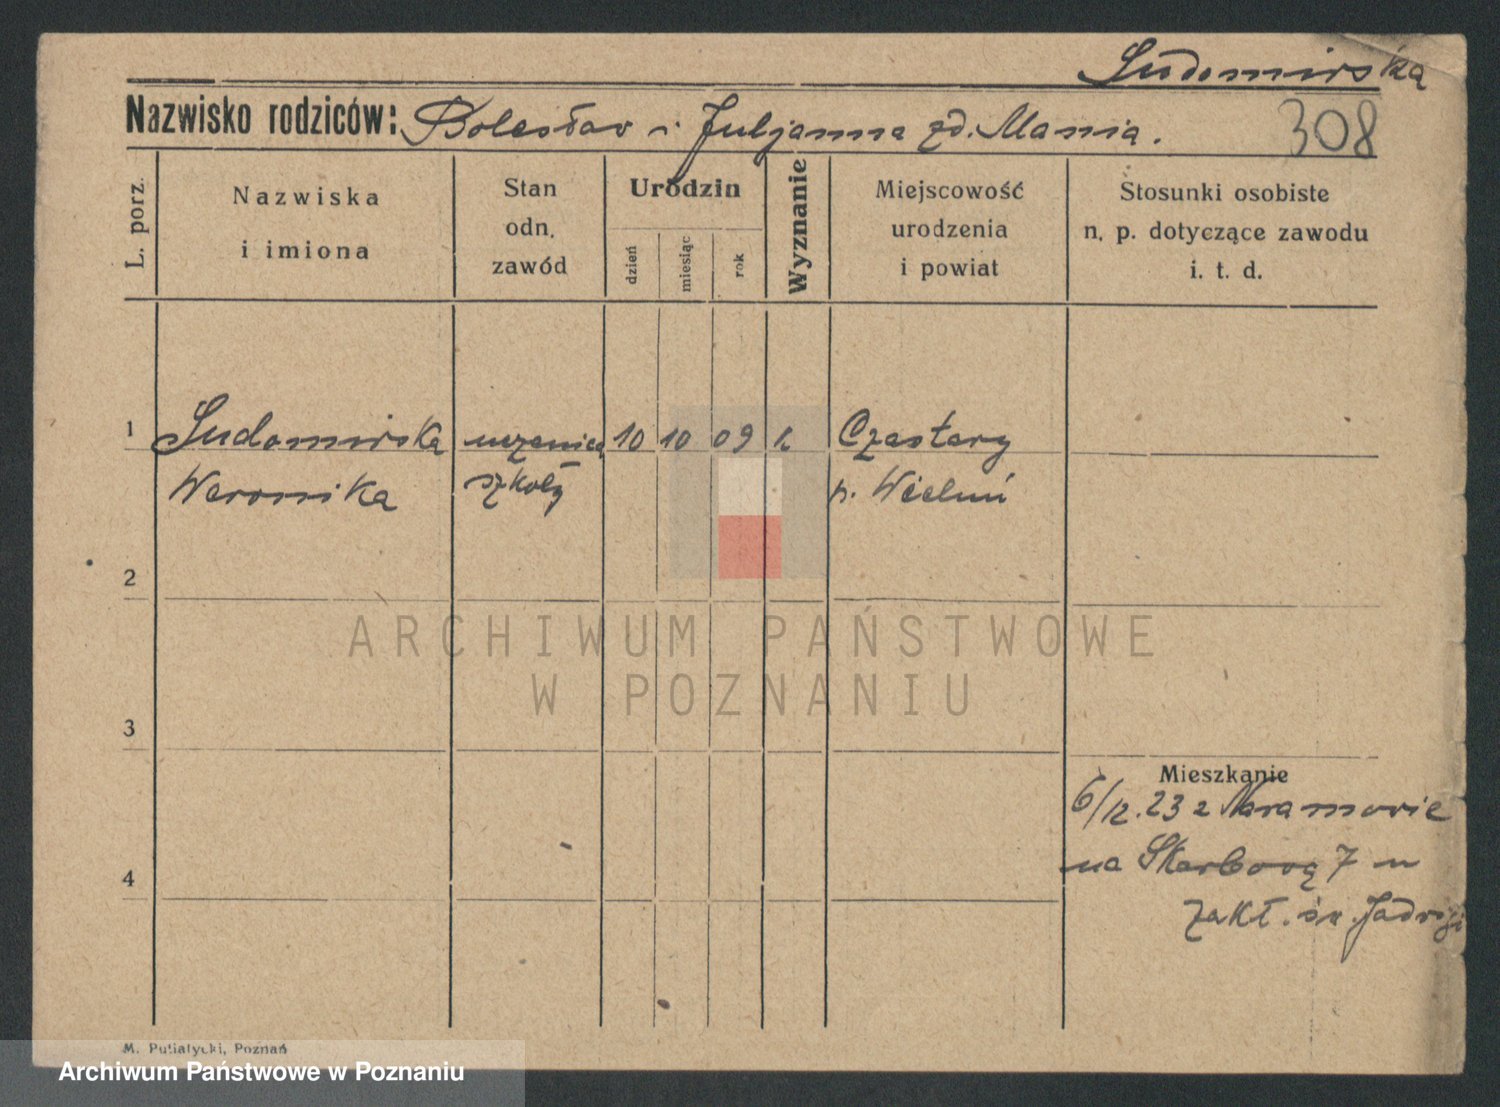 Sudomirska
Nazwisko rodziców: Bolesław i Juljanna zd. Mania.
308
L. porz.
Nazwiska
i imiona
Stan
odn.
zawód
Urodzin
dzień
miesiąc
rok
Wyznanie
Miejscowość
urodzenia
i powiat
Stosunki osobiste
n. p. dotyczące zawodu
i. t. d.
1 Sudomirska uczenica 10 10 09 k Czastary
Weronika szkoły p. Wieluń
2
3
4
ARCHIWUM PAŃSTWOWE
W POZNANIU
Mieszkanie
6/12.23 z Naramowic
na Skarbową 7 w
zakł. św. Jadwigi
M. Putiatycki, Poznań
Archiwum Państwowe w Poznaniu